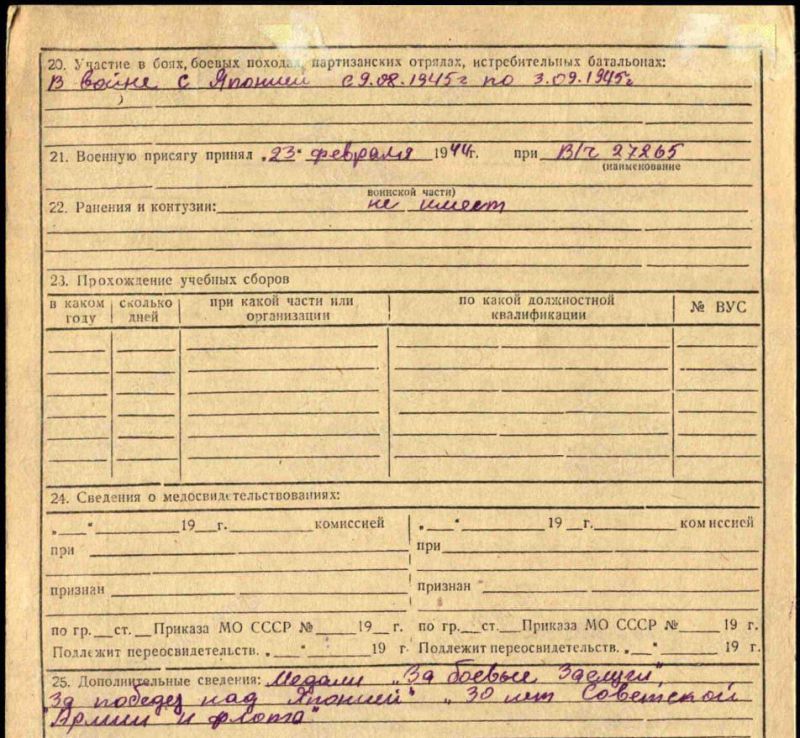 20. Участие в боях, боевых походах, партизанских отрядах, истребительных батальонах:
В войне с Японией с 9.08.1945г по 3.09.1945г
21. Военную присягу принял „23“ февраля 1944г. при В/ч 27265
(наименование
воинской части)
22. Ранения и контузии: не имеет
23. Прохождение учебных сборов
в каком году | сколько дней | при какой части или организации | по какой должностной квалификации | № ВУС
24. Сведения о медосвидетельствованиях:
„___“ ______ 19__г. ______ комиссией „___“ ______ 19__г. ______ комиссией
при ______ при ______
признан ______ признан ______
по гр.__ст.__Приказа МО СССР №____19 г. по гр.__ст.__Приказа МО СССР №____19 г.
Подлежит переосвидетельств. „___“ ______19 г Подлежит переосвидетельств. „___“ ______19 г
25. Дополнительные сведения: Медали „За боевые Заслуги“,
"За победу над Японией" „30 лет Советской
Армии и флота"